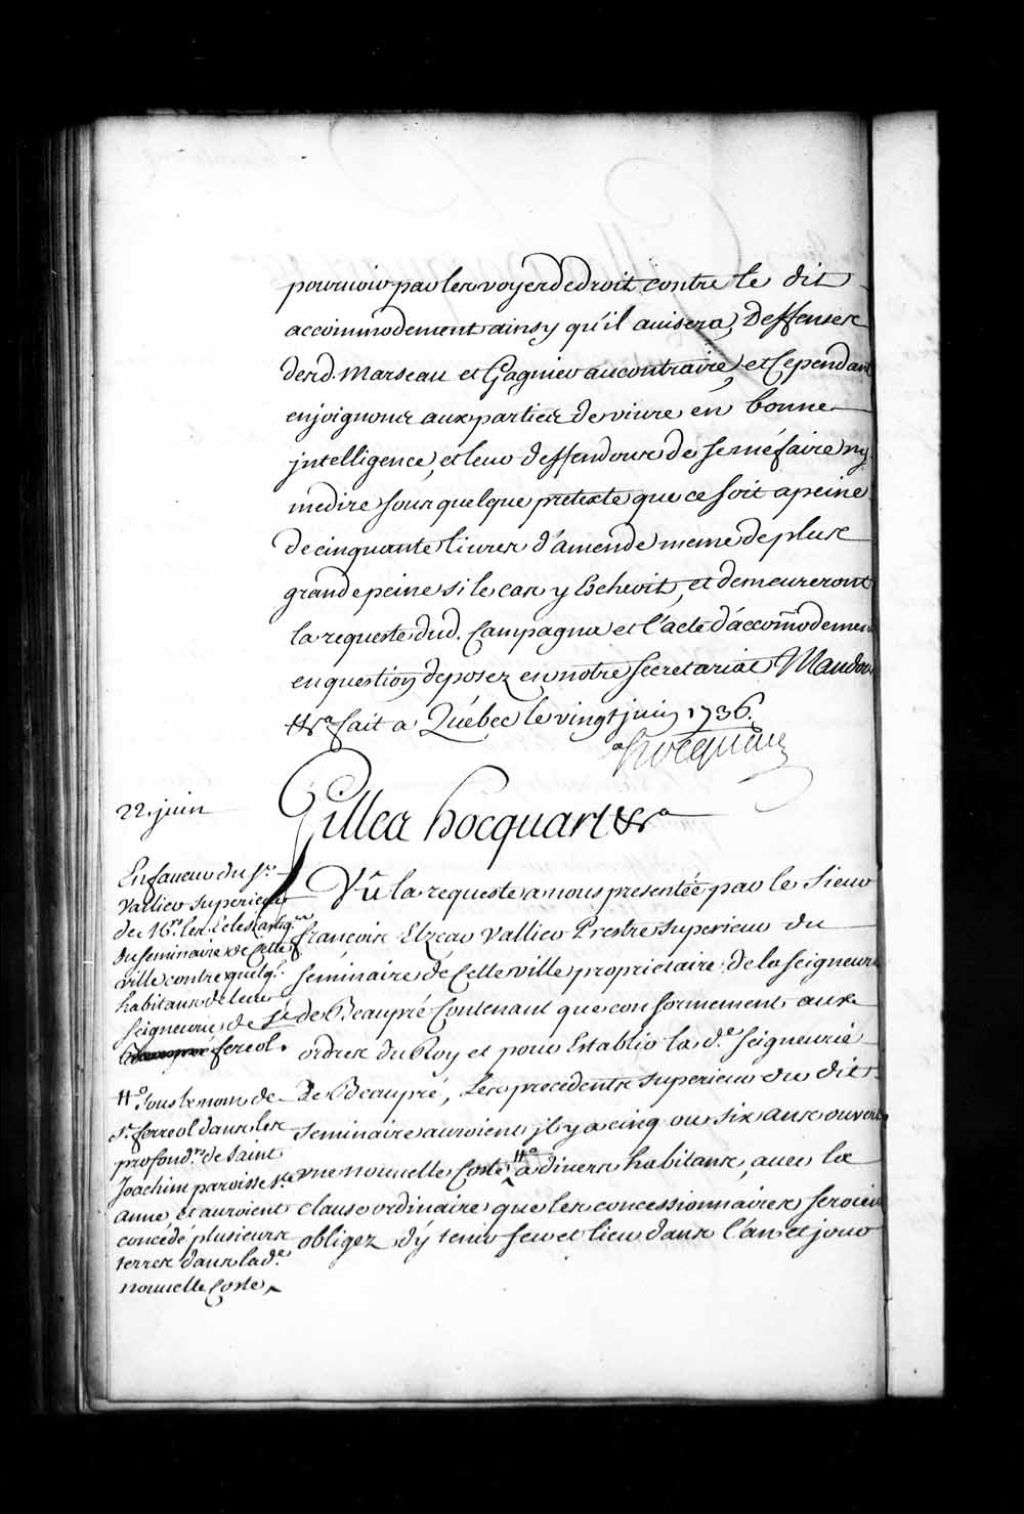 pourvoir par les voyes de droit contre le dit
accommodement ainsy qu'il avisera, deffenses
desd. Marseau et Gagnier au contraire, et Cependant
enjoignons aux parties de vivre en bonne
jntelligence, et leur deffendons de se méfaire ny
medire sous quelque pretexte que ce soit a peine
de cinquante livres d'amende meme de plus
grande peine si le cas y Echeoit, et demeureront
la requeste dud. Campagna et l'acte d'accom̃odement
en question deposez en notre secretariat Mandons
&ca fait a Québec le vingt juin 1736.
hocquart
22. juin
Gilles hocquart &ca
En faveur du Sr.
Vallier superieur
de Mrs. les Eclesiastiqes
du seminaire de Cette
ville contre quelqs.
habitans de leur
seigneurie de St
fereol.
Vû la requeste a nous presentée par le sieur
françois Elzear Vallier Prestre superieur du
seminaire de Cette ville proprietaire de la seigneurie
de Beaupré Contenant que conformement aux
ordres du Roy et pour Establir la de. seigneurie
de Beaupré, les precedents superieurs du dit
seminaire auroient jl y a cinq ou six ans ouvert
une nouvelle Coste # a divers habitans, avec la
clause ordinaire que les concessionnaires seroient
obligez d'y tenir feu et lieu dans l'an et jour
# sous le nom de
St. ferreol dans les
profondrs. de saint
Joachim paroisse Ste
anne, et auroient
concédé plusieurs
terres dans la de.
nouvelle Coste